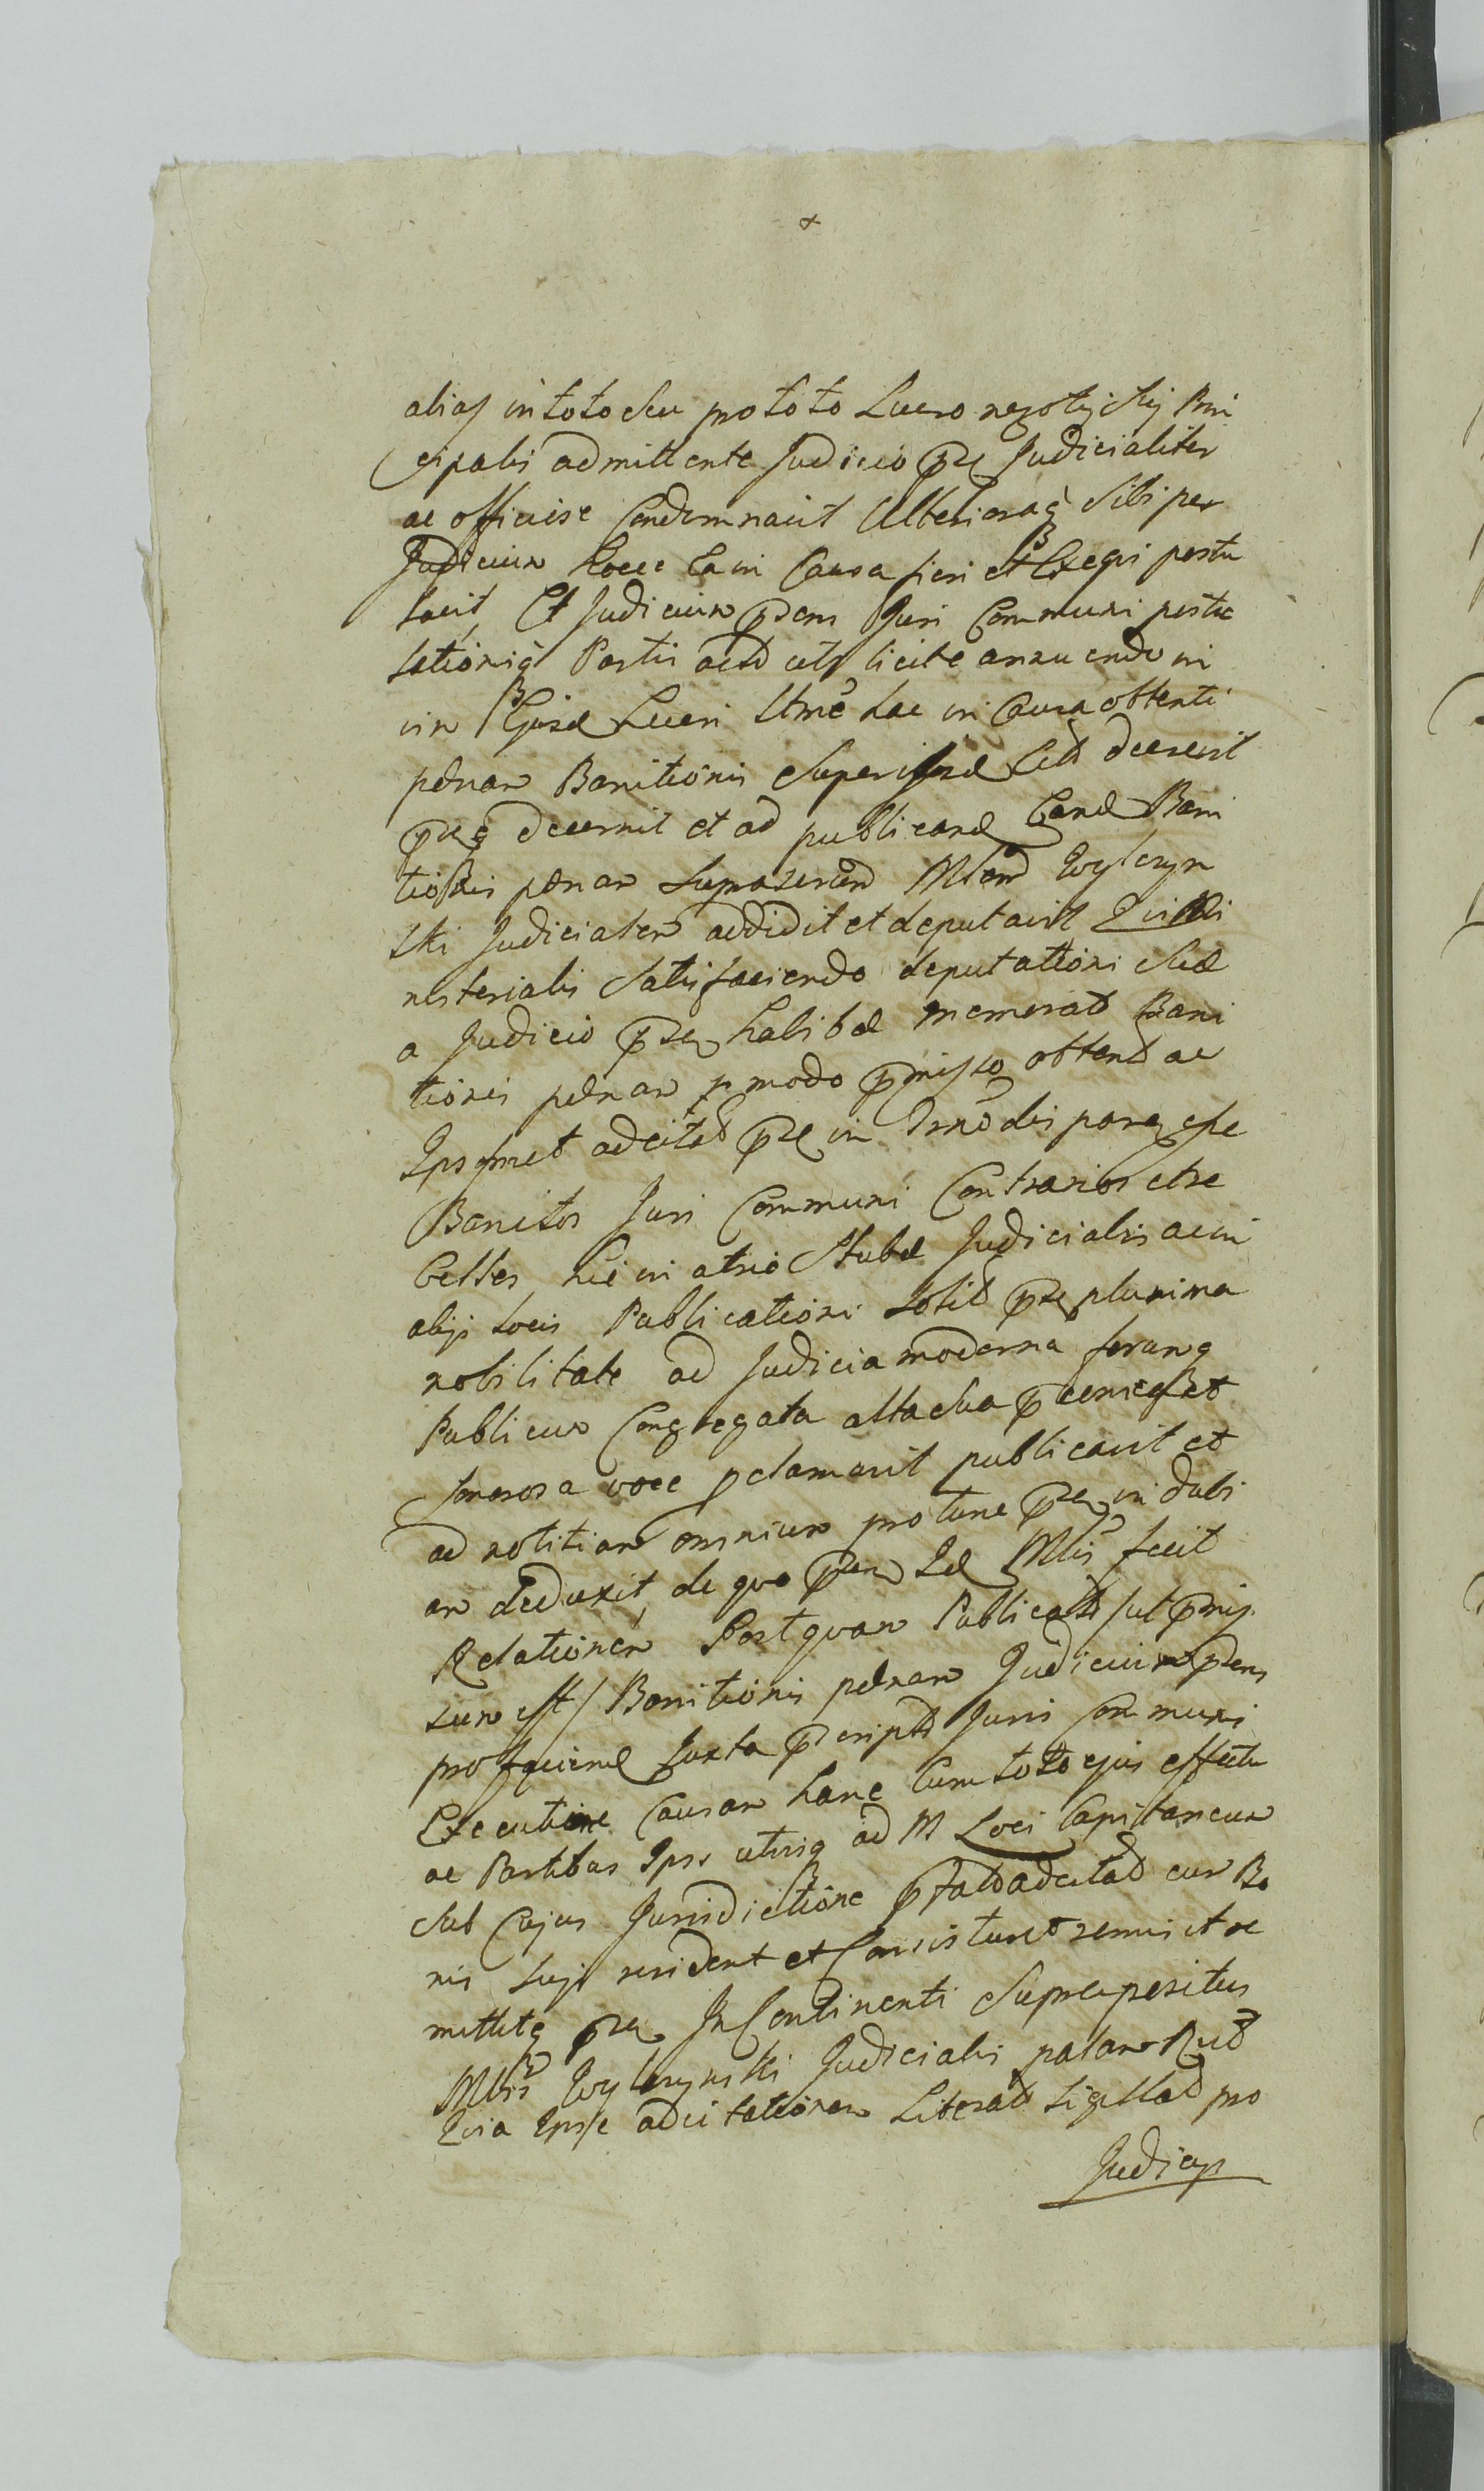 alias in toto seu pro toto Lucro negotij sui Prin
cipalis admittente Judicio pse Judicialiter
ac officiose Condemnavit Ulterioraq sibi per
Judicium hocce Ea in Causa fieri et Exequi postu
lavit, Et Judicium psens Juri Communi postu
lationiq Partis actd uts licite annuendo in
vim Ejusd Lucri Utme hac in Causa obtenti
penam Banitionis super ipsd Citd decrevit
pntq decernit et ad publicand Eand Bani
tionis penam Supratend Mlem Wylczyn
ski Judicialem addidit et deputavit Qui Mi
nisterialis satisfaciendo deputationi suae
a Judicio pse habitae memorat Bani
tionis penam modo pmisso obtent ac
Ipsosmet adcitat pse in dispares esse
Banitos Juri Communi Contrarios et re
belles hic in atrio Stubae Judicialis ac in
alijs locis Publicationi solit pse plurima
nobilitate ad Judicia moderna forumq
Publicum Congregata alta sua pconiaq et
sonorosa voce pclamavit publicavit et
ad notitiam omnium protunc pse in dubi
am deduxit, de quo psens Id Mlis fecit
Relationem Postquam Publicatd /ut pmis
sum est/ Banitionis penam Judicium psens
pro faciend Juxta pscriptd Juris Communi
Executione Causam hanc Cum toto ejus effectu
ac Partibus Ipsis utrisq ad M Loci Capitaneum
sub Cujus Jurisdictione pfatd adcitatd cum Bo
nis suis resident et Consistunt remisit re
mittitq pse In Continenti Suprapositus
Mlis Wylczynski Judicialis palam Recd
Quia Ipse adcitationem Literat sigillat pro
Judicijs